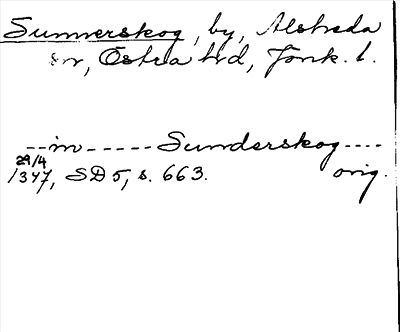 Sunnerskog, by, Alsheda
sn, Östra hd, Jönk. l.
--in-----Sunderskog----
29/4
1347, SD 5, s. 663. orig.